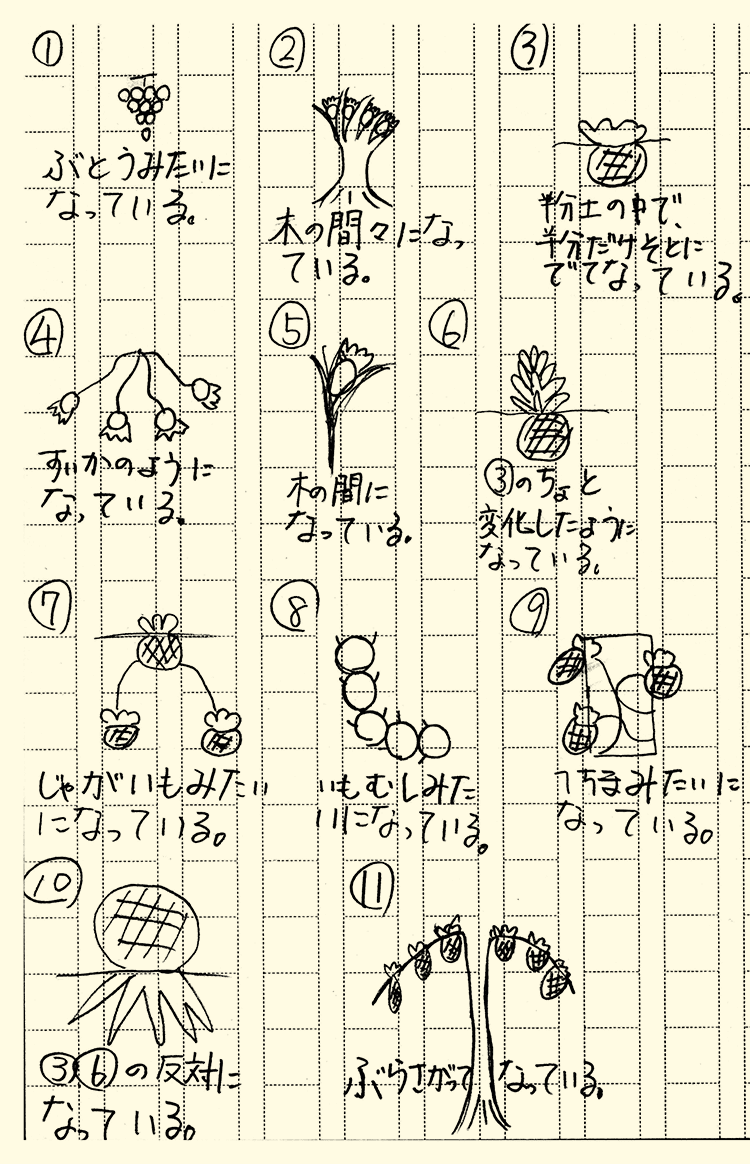 ①
ぶとうみたいに
なっている。
②
木の間々になっ
ている。
③
半分土の中で、
半分だけそとに
でてなっている。
④
すいかのように
なっている。
⑤
木の間に
なっている。
⑥
③のちょと
変化したように
なっている。
⑦
じゃがいもみたい
になっている。
⑧
いもむしみた
いになっている。
⑨
へちまみたいに
なっている。
⑩
③⑥の反対に
なっている。
⑪
ぶらさがって なっている。